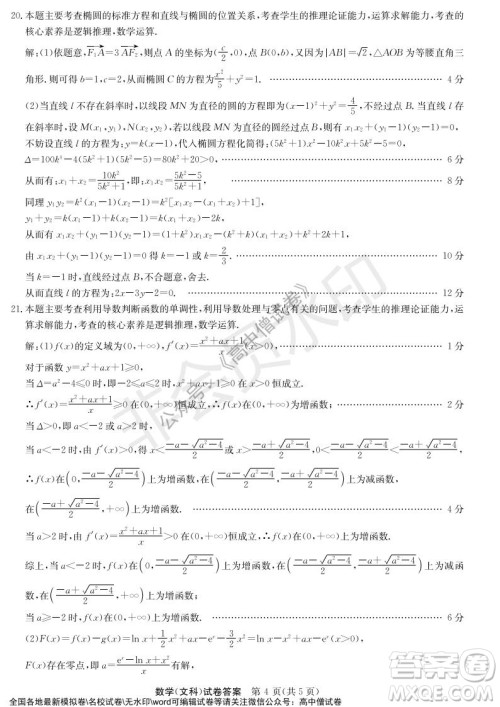 20. 本题主要考查椭圆的标准方程和直线与椭圆的位置关系,考查学生的推理论证能力,运算求解能力,考查的
核心素养是逻辑推理,数学运算.
解:(1)依题意,F₁A=3AF₂,则点 A 的坐标为(c/2,0),点 B(0,b),又因为|AB|=√2,△AOB 为等腰直角三
角形.则可得 b=1,c=2,从而椭圆 C 的方程为x²/5+y²=1. 4 分
(2)当直线 l 不存在斜率时,以线段 MN 为直径的圆的方程为(x-1)²+y²=4/5,不经过点 B.当直线 l 存
在斜率时,设 M(x₁,y₁),N(x₂,y₂),若以线段 MN 为直径的圆经过点 B,则有 x₁x₂+(y₁-1)(y₂-1)=0,
不妨设直线 l 的方程为:y=k(x-1),代入椭圆方程化简得:(5k²+1)x²-10k²x+5k²-5=0,
Δ=100k⁴-4(5k²+1)(5k²-5)=80k²+20>0, 6 分
从而有:x₁+x₂=10k²/(5k²+1),即:x₁x₂=(5k²-5)/(5k²+1), 8 分
同理 y₁y₂=k(x₁-1)·k(x₂-1)=k²[x₁x₂-(x₁+x₂)+1],
y₁+y₂=k(x₁-1)+k(x₂-1)=k(x₁+x₂)-2k,
从而有(1+k²)x₁x₂-(k²+k)(x₁+x₂)+k²+2k+1=0,
由(k+1)(3k-2)=0 得 k=-1 或 k=2/3. 10 分
当 k=-1 时,直线经过点 B,不合题意,舍去.
从而直线 l 的方程为:2x-3y-2=0. 12 分
21. 本题主要考查利用导数判断函数的单调性,利用导数处理与零点有关的问题,考查学生的推理论证能力,运
算求解能力,考查的核心素养是逻辑推理,数学运算.
解:(1)f(x)的定义域为(0,+∞),f′(x)=(x²+ax+1)/x(x>0). 1 分
对于函数 y=x²+ax+1≥0,
当 Δ=a²-4≤0 时,即-2≤a≤2 时,x²+ax+1≥0 在 x>0 恒成立.
∴f′(x)=(x²+ax+1)/x≥0 在(0,+∞)恒成立.∴f(x)在(0,+∞)为增函数. 2 分
当 Δ>0,即 a<-2 或 a>2 时,
当 a<-2 时,由 f′(x)>0,得 x<(-a-√(a²-4))/2 或 x>(-a+√(a²-4))/2,0<(-a-√(a²-4))/2<(-a+√(a²-4))/2,
∴f(x)在(0,(-a-√(a²-4))/2)上为增函数,((-a-√(a²-4))/2,(-a+√(a²-4))/2)上为减函数,
在((-a+√(a²-4))/2,+∞)上为增函数. 4 分
当 a>2 时,由 f′(x)=(x²+ax+1)/x>0 在(0,+∞)恒成立,∴f(x)在(0,+∞)为增函数.
综上,当 a<-2 时,f(x)在(0,(-a-√(a²-4))/2)上为增函数,((-a-√(a²-4))/2,(-a+√(a²-4))/2)上为减函数,
在((-a+√(a²-4))/2,+∞)上为增函数;
当 a≥-2 时,f(x)在(0,+∞)上为增函数. 6 分
(2)F(x)=f(x)-g(x)=ln x+1/2x²+ax+eˣ-3/2x²=ln x-x²+ax+eˣ(x>0),
因为 F(x)存在零点,即 a=(eˣ-ln x+x²)/x
数学(文科)试卷答案 第 4 页(共 5 页)
全国各地最新模拟卷\名校试卷\无水印\word可编辑试卷等请关注微信公众号:高中僧试卷